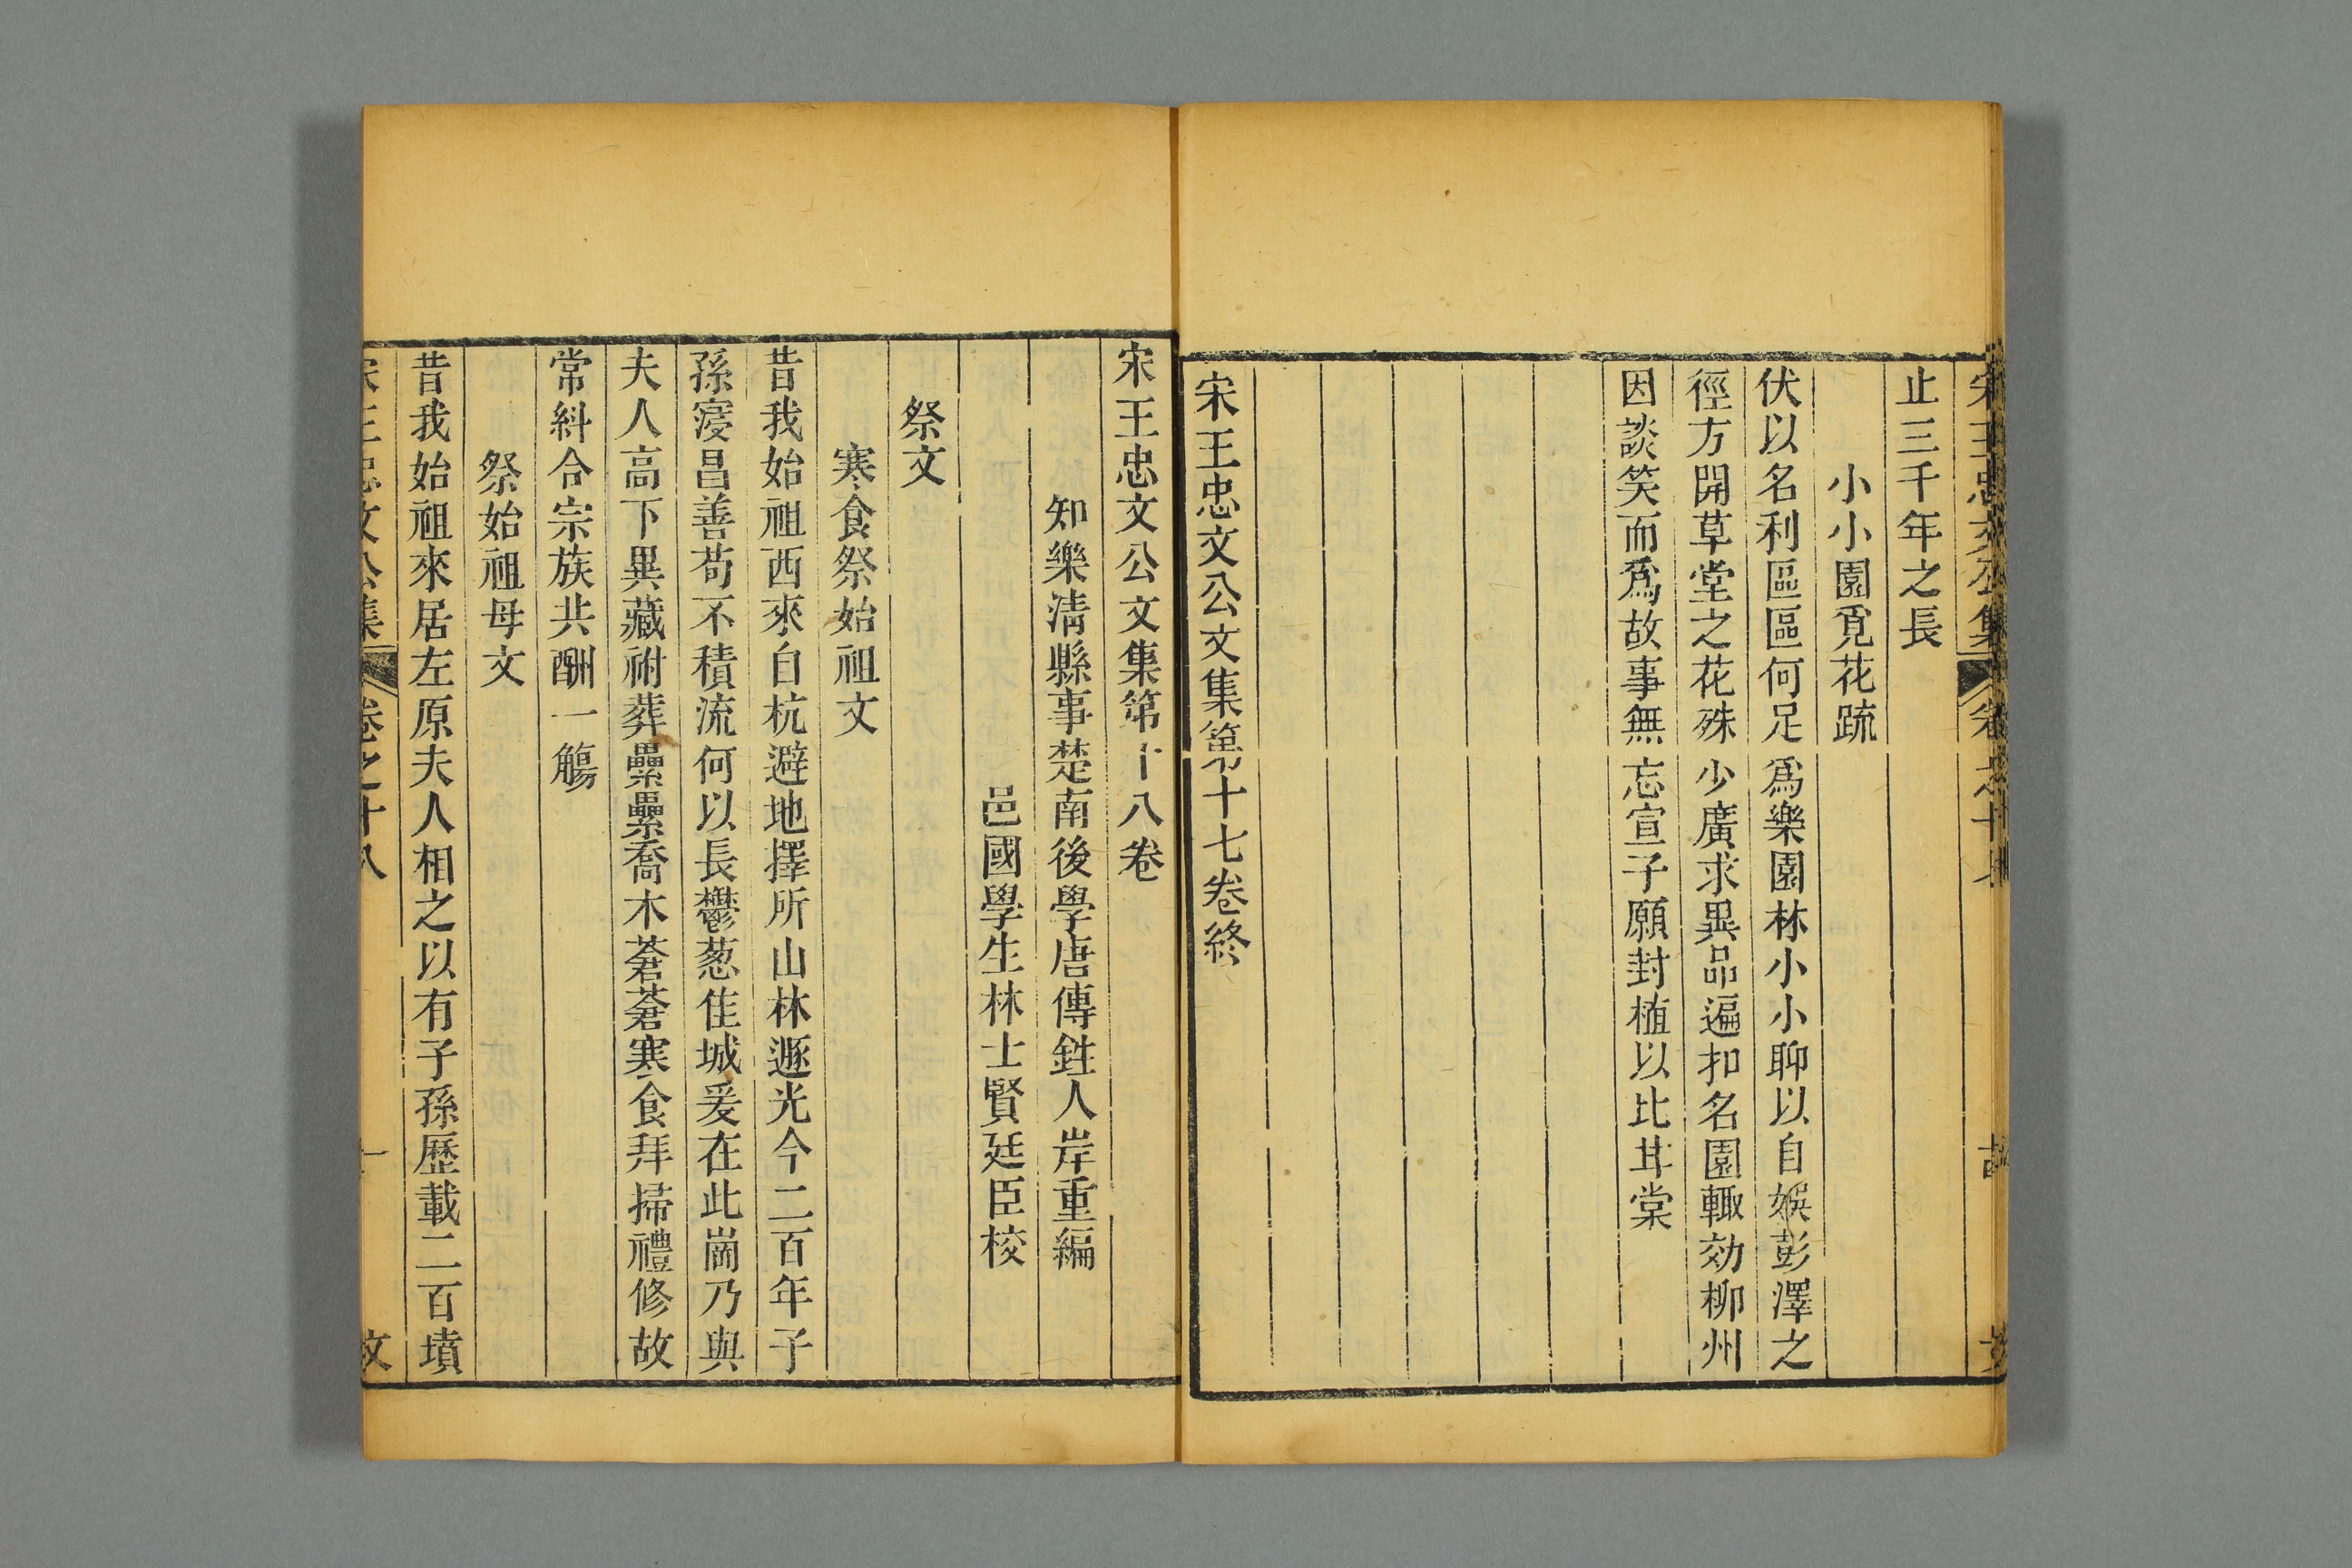 止三千年之長
小小園覓花疏
伏以名利區區何足爲樂園林小小聊以自娛彭澤之
徑方開草堂之花殊少廣求異品遍扣名園輙効柳州
因談笑而爲故事無忘宣子願封植以比甘棠
宋王忠文公文集第十七卷終
宋王忠文公文集第十八卷
知樂淸縣事楚南後學唐傳鉎人岸重編
邑國學生林士賢廷臣校
祭文
寒食祭始祖文
昔我始祖西來自杭避地擇所山林遯光今二百年子
孫寖昌善苟不積流何以長鬱葱佳城爰在此崗乃與
夫人高下異藏祔葬纍纍喬木蒼蒼寒食拜掃禮修故
常糾合宗族共酬一觴
祭始祖母文
昔我始祖來居左原夫人相之以有子孫歷載二百墳
宋王忠文公集 卷之十八 一 文